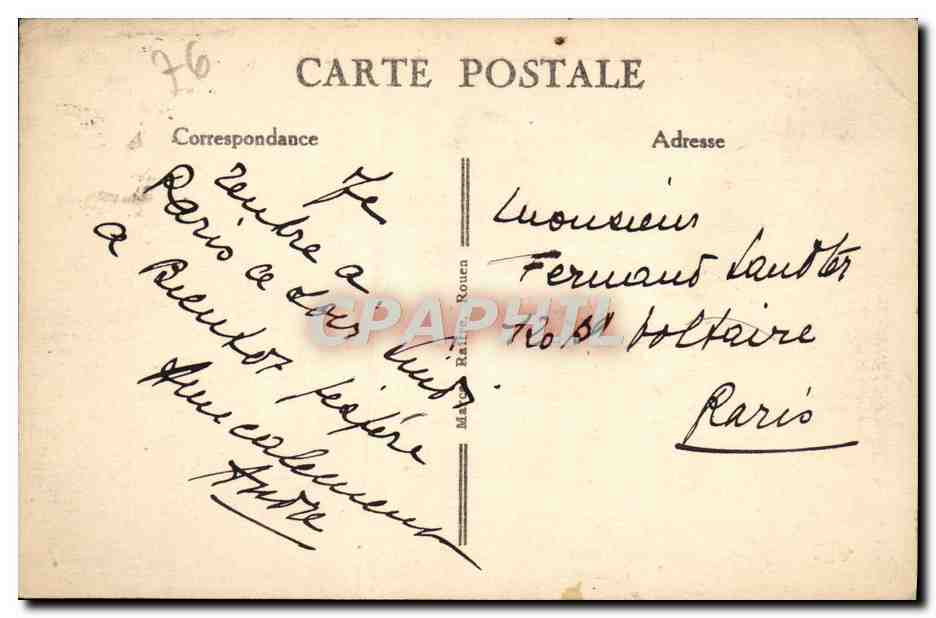 76
CARTE POSTALE
Correspondance
Adresse
Je
rentre a
Paris ce soir lundi
a Bientot j'espère
Amicalement
André
Marcel Rouen
Monsieur
Fernand
Bd Voltaire
Paris
CPAPHIL